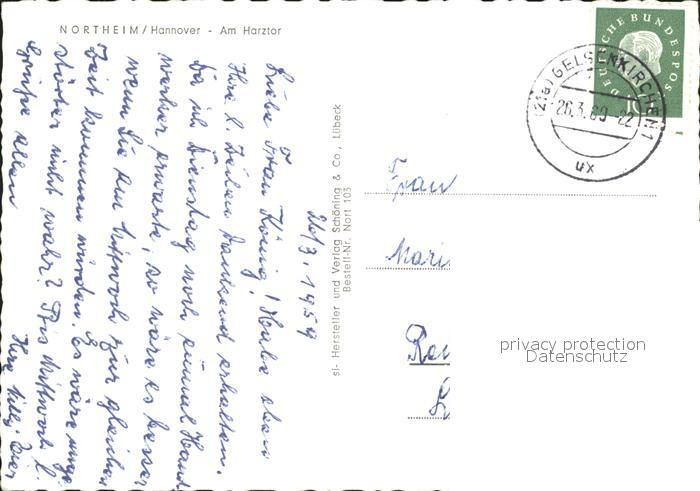 NORTHEIM/Hannover - Am Harztor
26/3. 1959
Liebe Frau König! Habe eben
Ihre l. Zeilen dankend erhalten.
Da ich Dienstag noch einmal Hand
werker erwarte, so wäre es besser
wenn Sie am Mittwoch zur gleichen
Zeit kommen würden. Es wäre
störter nicht wahr? Bis Mittwoch l.
Grüße allen
Ihre
sl- Hersteller und Verlag Schöning & Co., Lübeck
Bestell-Nr. Nort 103
DEUTSCHE BUNDESPOST
10
(21a) GELSENKIRCHEN 1
26.3.69-22
ux
Frau
Mari
privacy protection
Datenschutz